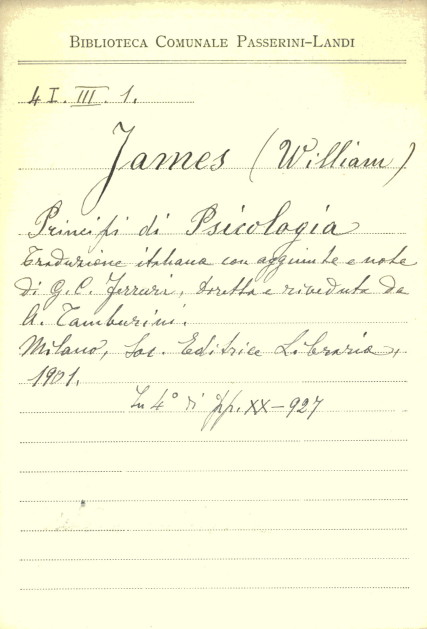 BIBLIOTECA COMUNALE PASSERINI-LANDI
4 I. III. 1.
James (William)
Principi di Psicologia
Traduzione italiana con aggiunte e note
di G. C. Ferrari, diretta e riveduta da
A. Tamburini.
Milano, Soc. Editrice Libraria,
1901.
In 4° di pp. XX-927